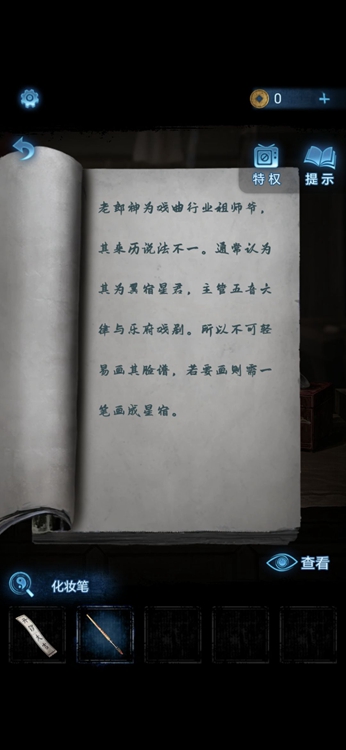 0
特权
提示
老郎神为戏曲行业祖师爷，
其来历说法不一。通常认为
其为翼宿星君，主管五音六
律与乐府戏剧。所以不可轻
易画其脸谱，若要画则需一
笔画成星宿。
查看
化妆笔